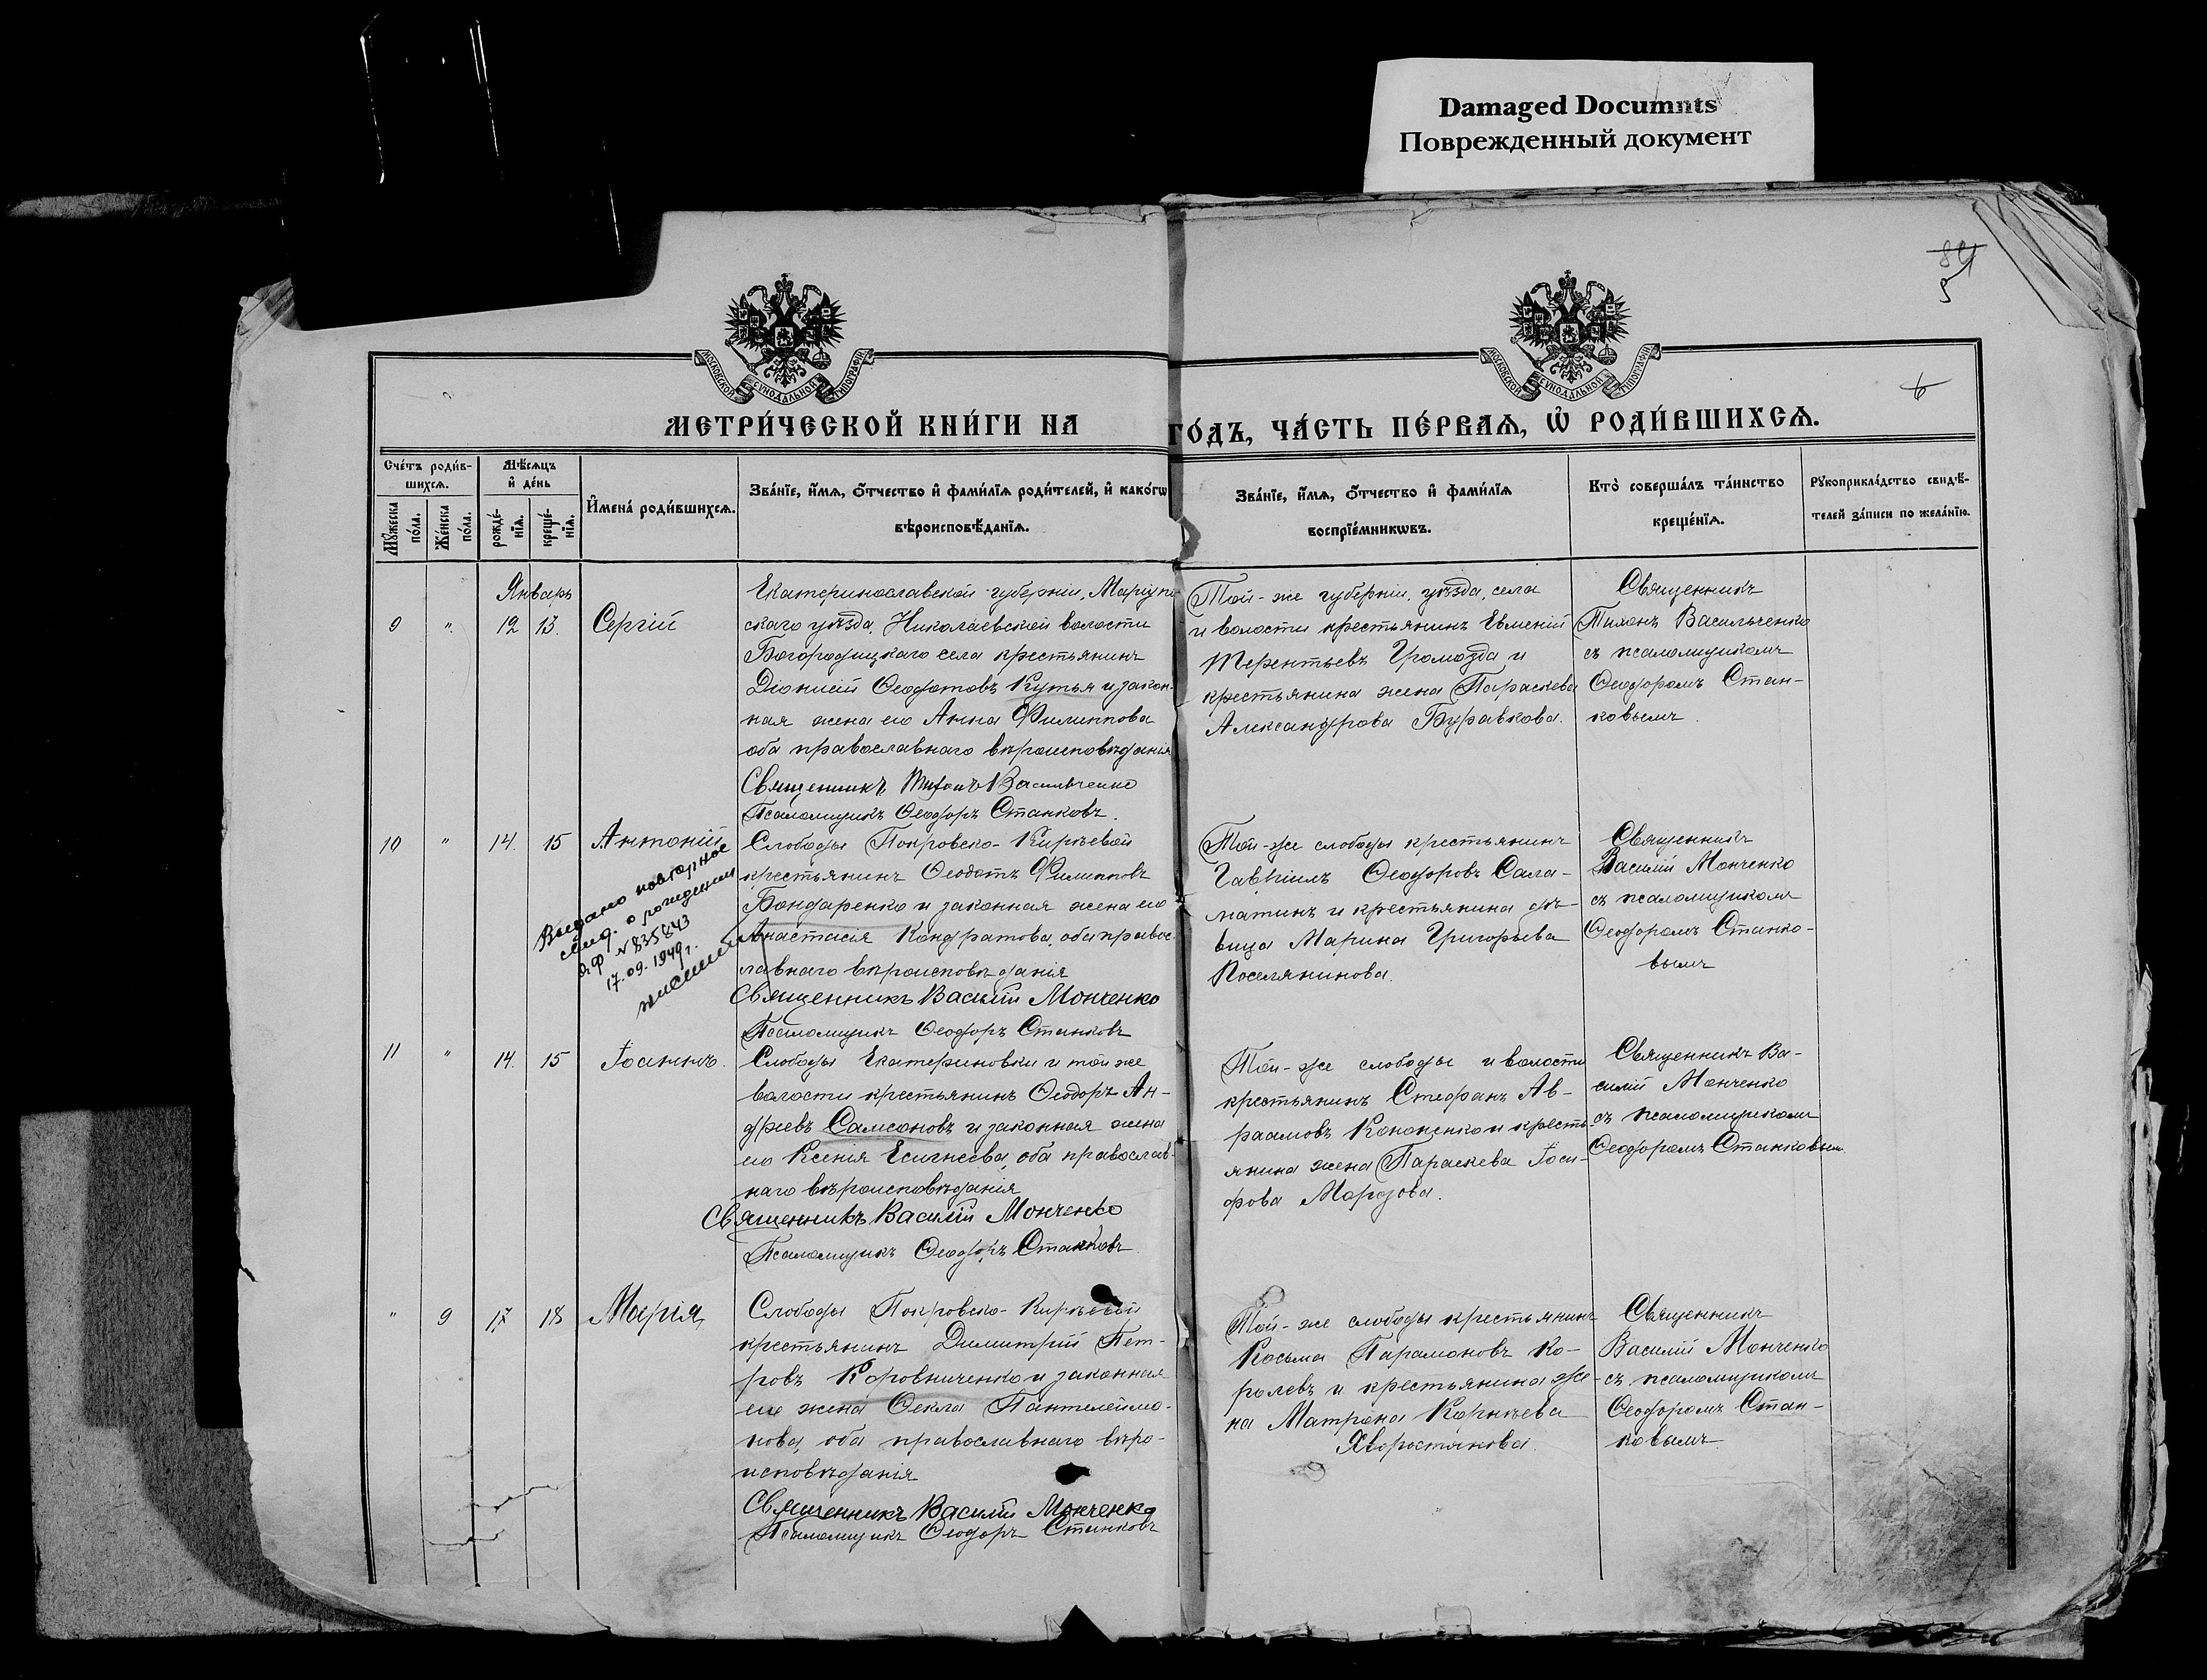 Damaged Documnts
Поврежденный документ
84
5
6
МОСКОВСКОЙ СѴНОДАЛЬНОЙ ТИПОГРАФІИ
МОСКОВСКОЙ СѴНОДАЛЬНОЙ ТИПОГРАФІИ
МЕТРИ́ЧЕСКОЙ КНИ́ГИ НА ГО́ДЪ, ЧА́СТЬ ПЕ́РВАѦ, Ѡ РОДИ́ВШИХСѦ.
Сче́тъ роди́в-
шихсѧ.
Мꙋ́жеска по́ла.
Же́нска по́ла.
Мѣ́сѧцъ
и҆ де́нь
рожде́-
нїѧ.
креще́-
нїѧ.
И҆мена̀ роди́вшихсѧ.
Зва́нїе, и҆́мѧ, ѻ҆́тчество и҆ фами́лїѧ роди́телей, и҆ како́гѡ
вѣроисповѣ́данїѧ.
Зва́нїе, и҆́мѧ, ѻ҆́тчество и҆ фами́лїѧ
воспрїе́мникѡвъ.
Кто̀ соверша́лъ та́инство
креще́нїѧ.
Рꙋкоприкла́дство свидѣ́-
телей за́писи по жела́нїю.
Январь
9 " 12 13. Сергій
Екатеринославской губерніи, Маріупо
скаго уѣзда, Николаевской волости
Богородицкаго села крестьянинъ
Діонисій Ѳеодотовъ Кутья и закон-
ная жена его Анна Филиппова
оба православнаго вѣроисповѣданія
Священникъ Тихонъ Васильченко
Псаломщикъ Ѳеодоръ Станковъ.
Той-же губерніи, уѣзда, села
и волости крестьянинъ Евменій
Терентьевъ Громозда и
крестьянина жена Параскева
Александрова Буравкова.
Священникъ
Тихонъ Васильченко
съ псаломщикомъ
Ѳеодоромъ Стан-
ковымъ.
10 " 14. 15 Антоній
Выдано повторное
свид. о рождении
ЯФ N 835843
17.09.1949г.
Слободы Покровско-Кирѣевой
крестьянинъ Ѳеодотъ Филипповъ
Бондаренко и законная жена его
Анастасія Кондратова, оба правос-
лавнаго вѣроисповѣданія
Священникъ Василій Монченко
Псаломщикъ Ѳеодоръ Станковъ
Той-же слободы крестьянинъ
Гавріилъ Ѳеодоровъ Сала-
матинъ и крестьянина дѣ-
вица Марина Григорьева
Поселянинова.
Священникъ
Василій Монченко
съ псаломщикомъ
Ѳеодоромъ Станко-
вымъ
11 " 14. 15 Іоаннъ.
Слободы Екатериновки и той же
волости крестьянинъ Ѳеодоръ Ан-
дреевъ Самсоновъ и законная жена
его Ксенія Есигнеева, оба православ-
наго вѣроисповѣданія
Священникъ Василій Монченко
Псаломщикъ Ѳеодоръ Станковъ
Той-же слободы и волости
крестьянинъ Стефанъ Ав-
раамовъ Кононенко и кресть-
янина жена Параскева Іоси-
фова Морозова.
Священникъ Ва-
силій Монченко
съ псаломщикомъ
Ѳеодоромъ Станковым
" 9 17 18 Марія,
Слободы Покровско-Кирѣевой
крестьянинъ Димитрій Пет-
ровъ Коровниченко и законная
его жена Ѳекла Пантелеймо-
нова, оба православнаго вѣро-
исповѣданія
Священникъ Василій Монченко
Псаломщикъ Ѳеодоръ Станковъ
Той-же слободы крестьянинъ
Косьма Парамоновъ Ко-
ролевъ и крестьянина же-
на Матрона Корнѣева
Хворостянова.
Священникъ
Василій Монченко
съ псаломщикомъ
Ѳеодоромъ Стан-
ковымъ